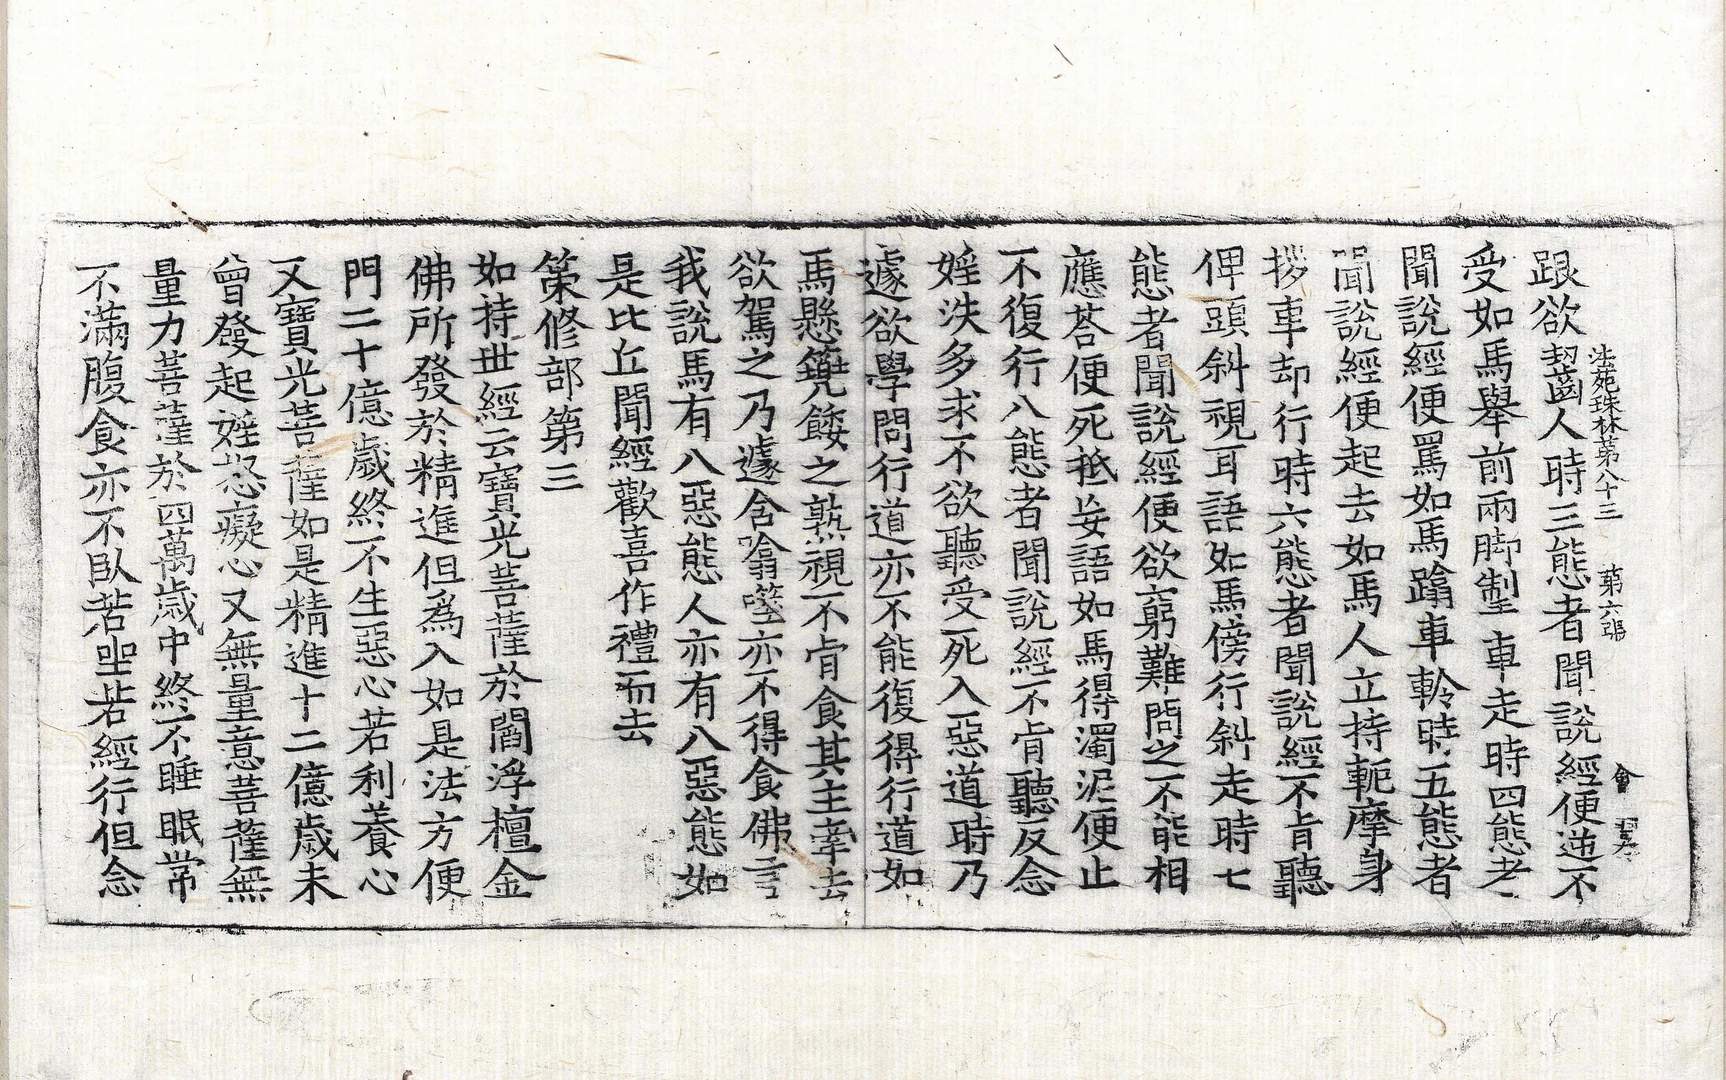 法苑珠林第八十三　第六張　會
跟欲齧人時三態者聞說經便逆不
受如馬舉前兩脚掣車走時四態者
聞說經便罵如馬蹋車軨時五態者
聞說經便起去如馬人立持軛摩身
拶車却行時六態者聞說經不肯聽
俾頭斜視耳語如馬傍行斜走時七
態者聞說經便欲窮難問之不能相
應荅便死抵妄語如馬得濁泥便止
不復行八態者聞說經不肯聽反念
婬泆多求不欲聽受死入惡道時乃
遽欲學問行道亦不能復得行道如
馬懸篼餧之熟視不肯食其主牽去
欲駕之乃遽含噏噬亦不得食佛言
我說馬有八惡態人亦有八惡態如
是比丘聞經歡喜作禮而去
策修部第三
如持世經云寶光菩薩於閻浮檀金
佛所發於精進但爲入如是法方便
門二十億歲終不生惡心若利養心
又寶光菩薩如是精進十二億歲未
曾發起婬怒癡心又無量意菩薩無
量力菩薩於四萬歲中終不睡眠常
不滿腹食亦不臥若坐若經行但念